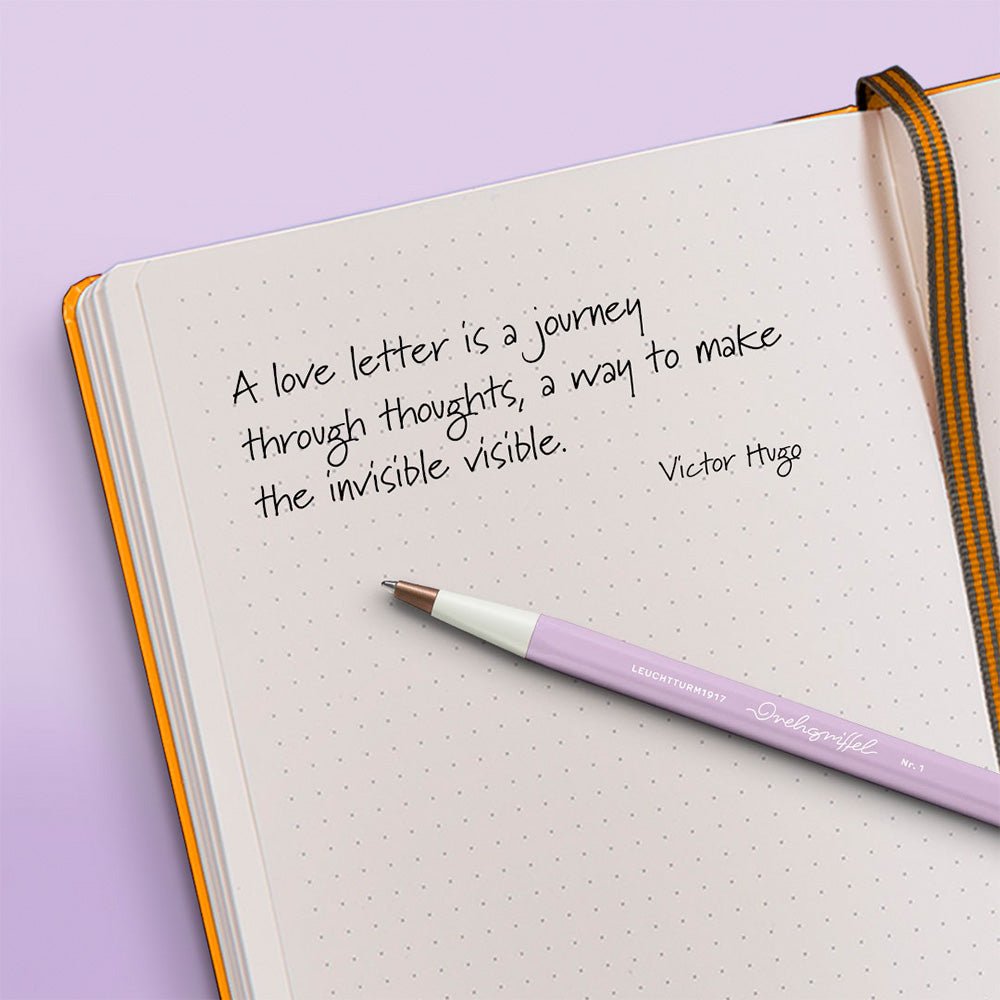 A love letter is a journey
through thoughts, a way to make
the invisible visible.
Victor Hugo
LEUCHTTURM1917 Drehgriffel Nr. 1